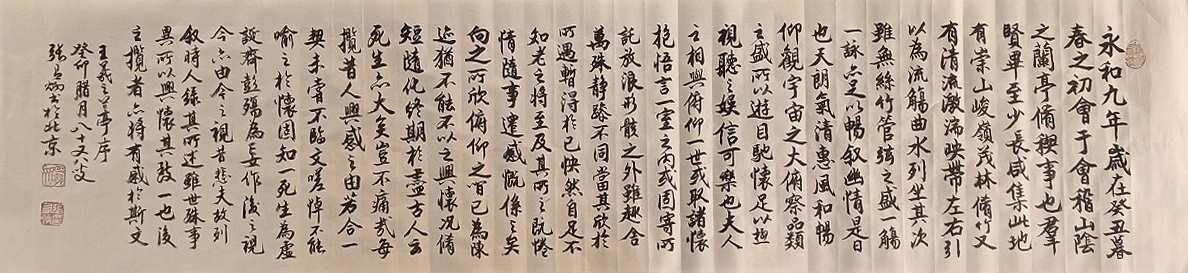 永和九年歲在癸丑暮
春之初會于會稽山陰
之蘭亭脩稧事也羣
賢畢至少長咸集此地
有崇山峻嶺茂林脩竹又
有清流激湍映帶左右引
以為流觴曲水列坐其次
雖無絲竹管弦之盛一觴
一詠亦足以暢叙幽情是日
也天朗氣清惠風和暢
仰觀宇宙之大俯察品類
之盛所以遊目騁懷足以極
視聽之娛信可樂也夫人
之相與俯仰一世或取諸懷
抱悟言一室之內或因寄所
託放浪形骸之外雖趣舍
萬殊靜躁不同當其欣於
所遇暫得於己快然自足不
知老之將至及其所之既惓
情隨事遷感慨係之矣
向之所欣俯仰之間已為陳
迹猶不能不以之興懷况脩
短隨化終期於盡古人云
死生亦大矣豈不痛哉每
攬昔人興感之由若合一
契未甞不臨文嗟悼不能
喻之於懷固知一死生為虛
誕齊彭殤為妄作後之視
今亦由今之視昔悲夫故列
叙時人錄其所述雖世殊事
異所以興懷其致一也後
之攬者亦將有感於斯文
王羲之蘭亭序
癸卯腊月八
書於北京